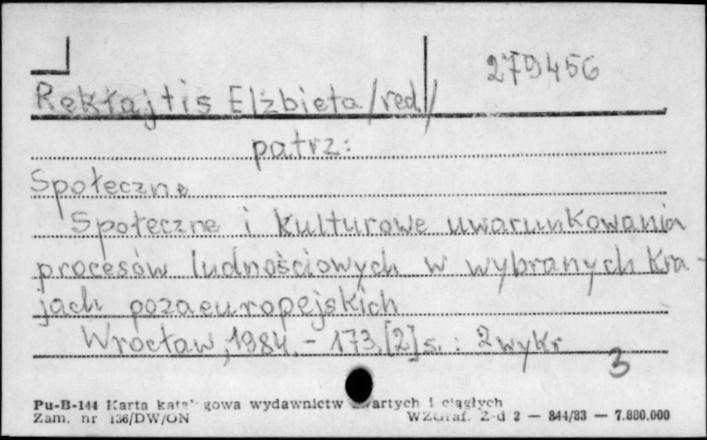 279456
Rekłajtis Elżbieta /red./
patrz:
Społeczne
Społeczne i kulturowe uwarunkowania
procesów ludnościowych w wybranych kra-
jach pozaeuropejskich
Wrocław, 1984. - 173,[2] s. : 2 wykr
3
Pu-B-144 Karta katalogowa wydawnictw zwartych i ciągłych
Zam. nr 136/DW/ON WZGraf. Z-d 2 — 844/83 — 7.880.000